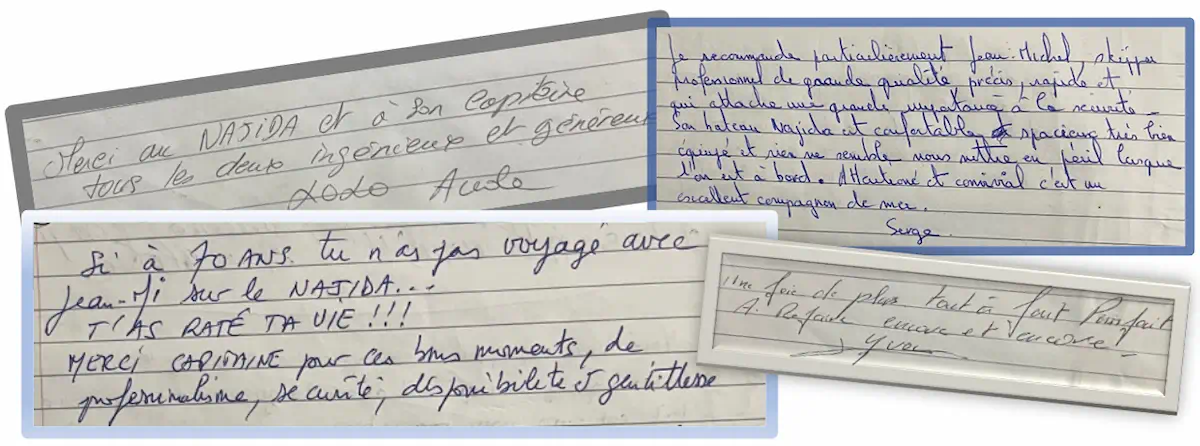 Merci au NAJIDA et à son Capitaine
tous les deux ingénieux et généreux
Dodo
Je recommande particulièrement Jean-Michel, skipper
professionnel de grande qualité précis, rapide et
qui attache une grande importance à la sécurité -
Son bateau Najida est confortable et spacieux très bien
équipé et rien ne semble nous mettre en péril lorsque
l'on est à bord. Attentionné et convivial c'est un
excellent compagnon de mer.
Serge
Si à 70 ANS. tu n'as pas voyagé avec
Jean-Mi sur le NAJIDA...
T'AS RATÉ TA VIE !!!
MERCI CAPITAINE pour ces bons moments, de
professionalisme, sécurité, disponibilité et gentillesse
Une fois de plus tout à fait Parfait
A' Refaire encore et encore! -
Yvon